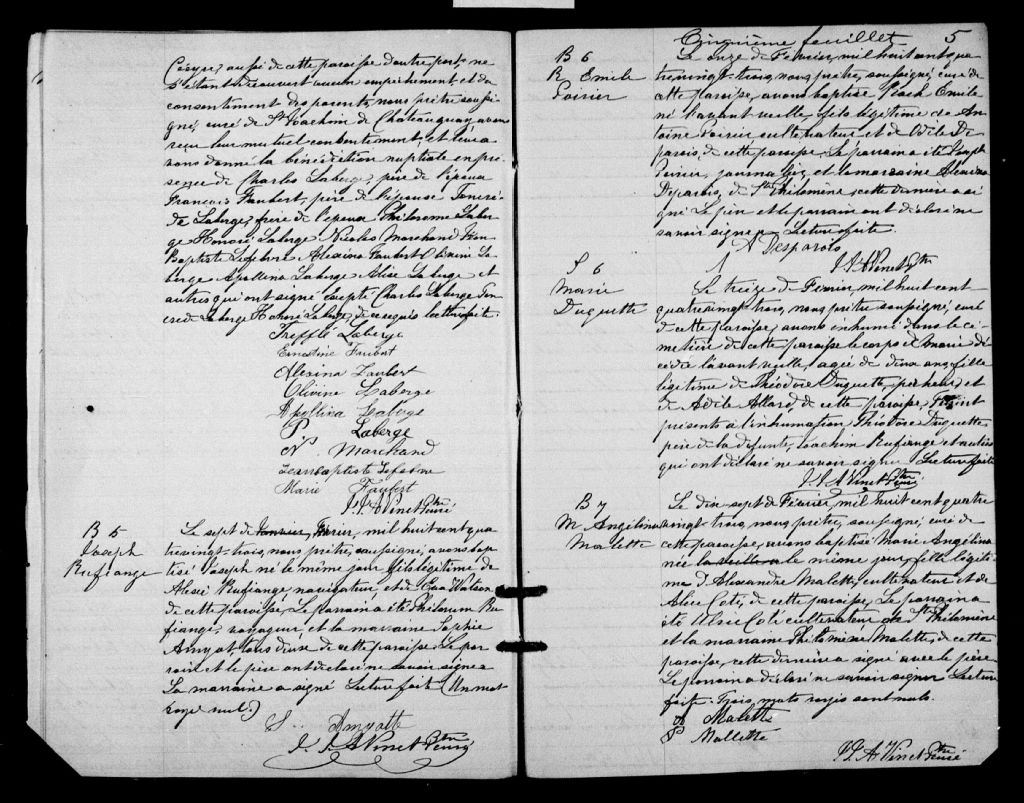 aussi de cette paroisse d'autre part, ne
s'étant découvert aucun empêchement et du
consentement des parents, nous prêtre soussi-
gné, curé de St Joachim de Châteauguay, avons
reçu leur mutuel consentement, et leur a
vons donné la bénédiction nuptiale en pré
sence de Charles Laberge, père de l'époux
François Faubert, père de l'épouse Tancrè-
de Laberge, frère de l'époux Philorome Laber
ge Honoré Laberge Nicolas Marchand Jean
Baptiste Lefebvre Alexina Faubert Olivine La
berge Apollina Laberge Alice Laberge et
autres qui ont signé excepté Charles Laberge Tan
crède Laberge Honoré Laberge, de ce requis lecture faite.
Trefflé Laberge
Ernestine Faubert
Alexina Faubert
Olivine Laberge
Apollina Laberge
P Laberge
N. Marchand
Jean Baptiste Lefebvre
Marie Faubert
J. J. A Vinet Ptre
B 5
Joseph
Rufiange
Le sept de Janvier Février, mil huit cent qua
tre vingt-trois, nous prêtre, soussigné, avons bap
tisé Joseph né le même jour fils légitime de
Alexi Rufiange, navigateur, et de Eva Watson
de cette paroisse, Le parrain a été Philorum Ru
fiange, voyageur, et la marraine Sophie
Amyot, tous deux de cette paroisse. Le par
rain et le père ont déclaré ne savoir signer
La marraine a signé Lecture faite (Un mot
rayé nul.)
S. Amyotte
J. J. A Vinet Ptre
Cinquième feuillet 5
B 6
R Emile
Poirier
Le onze de Février, mil huit cent qua
tre vingt-trois, nous prêtre, soussigné, curé de
cette paroisse, avons baptisé Emile
né l'avant veille, fils légitime de An
toine Poirier cultivateur et de Adele De
parois, de cette paroisse. Le parrain a été Joseph
Poirier, et la marraine Alexina
Déparois, de Ste Philomène, cette dernière a si
gné Le père et le parrain ont déclaré ne
savoir signer. Lecture faite
A Desparois
J. J. A Vinet Ptre
S 6
Marie
Duquette
Le treize de Février, mil huit cent
quatre vingt trois, nous prêtre soussigné, curé
de cette paroisse, avons enhumé dans le ci-
metière de cette paroisse le corps de Marie dé
cédée l'avant veille, agée de deux ans fille
légitime de Théodore Duquette, et
de Adèle Allard, de cette paroisse, Furent
présents à l'inhumation Théodore Duquette
père de la défunte, Joachim Rufiange et autres
qui ont déclaré ne savoir signer Lecture faite
J. J. A Vinet Ptre
B 7
M Angélina
Malette
Le dix sept de Février, mil huit cent quatre
vingt-trois, nous prêtre, soussigné, curé de
cette paroisse, avons baptisé Marie Angélina
née la veille le même jour, fille légiti-
me d'Alexandre Malette, cultivateur et de
Alice Coté, de cette paroisse. Le parrain a
été Ulric Coté cultivateur de Ste Philomène
et la marraine Philomène Malette, de cette
paroisse, cette dernière a signé avec le père
Le parrain a déclaré ne savoir signer Lecture
faite Trois mots rayés sont nuls.
A Malette
P Mallette
J. J. A Vinet Ptre